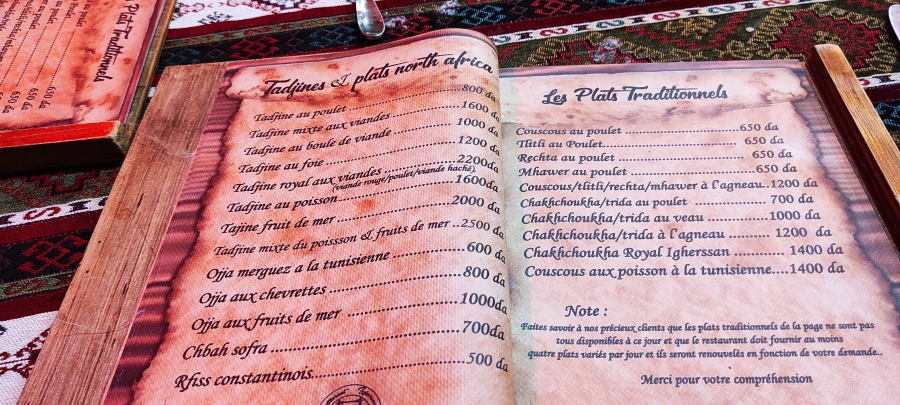 Plats Traditionnels
650 da
650 da
650 da
Tadjines & plats north africa
Tadjine au poulet 800 da
Tadjine mixte aux viandes 1600 da
Tadjine au boule de viande 1000 da
Tadjine au foie 1200 da
Tadjine royal aux viandes 2200da
(viande rouge/poulet/viande haché)
Tadjine au poisson 1600da
Tajine fruit de mer 2000 da
Tadjine mixte du poissson & fruits de mer ..2500 da
Ojja merguez a la tunisienne 600 da
Ojja aux chevrettes 800 da
Ojja aux fruits de mer 1000da
Chbah sofra 700da
Rfiss constantinois 500 da
Les Plats Traditionnels
Couscous au poulet 650 da
Tlitli au Poulet 650 da
Rechta au poulet 650 da
Mhawer au poulet 650 da
Couscous/tlitli/rechta/mhawer à l'agneau..1200 da
Chakhchoukha/trida au poulet 700 da
Chakhchoukha/trida au veau 1000 da
Chakhchoukha/trida à l'agneau 1200 da
Chakhchoukha Royal Igherssan 1400 da
Couscous aux poisson à la tunisienne....1400 da
Note :
Faites savoir à nos précieux clients que les plats traditionnels de la page ne sont pas
tous disponibles à ce jour et que le restaurant doit fournir au moins
quatre plats variés par jour et ils seront renouvelés en fonction de votre demande..
Merci pour votre compréhension